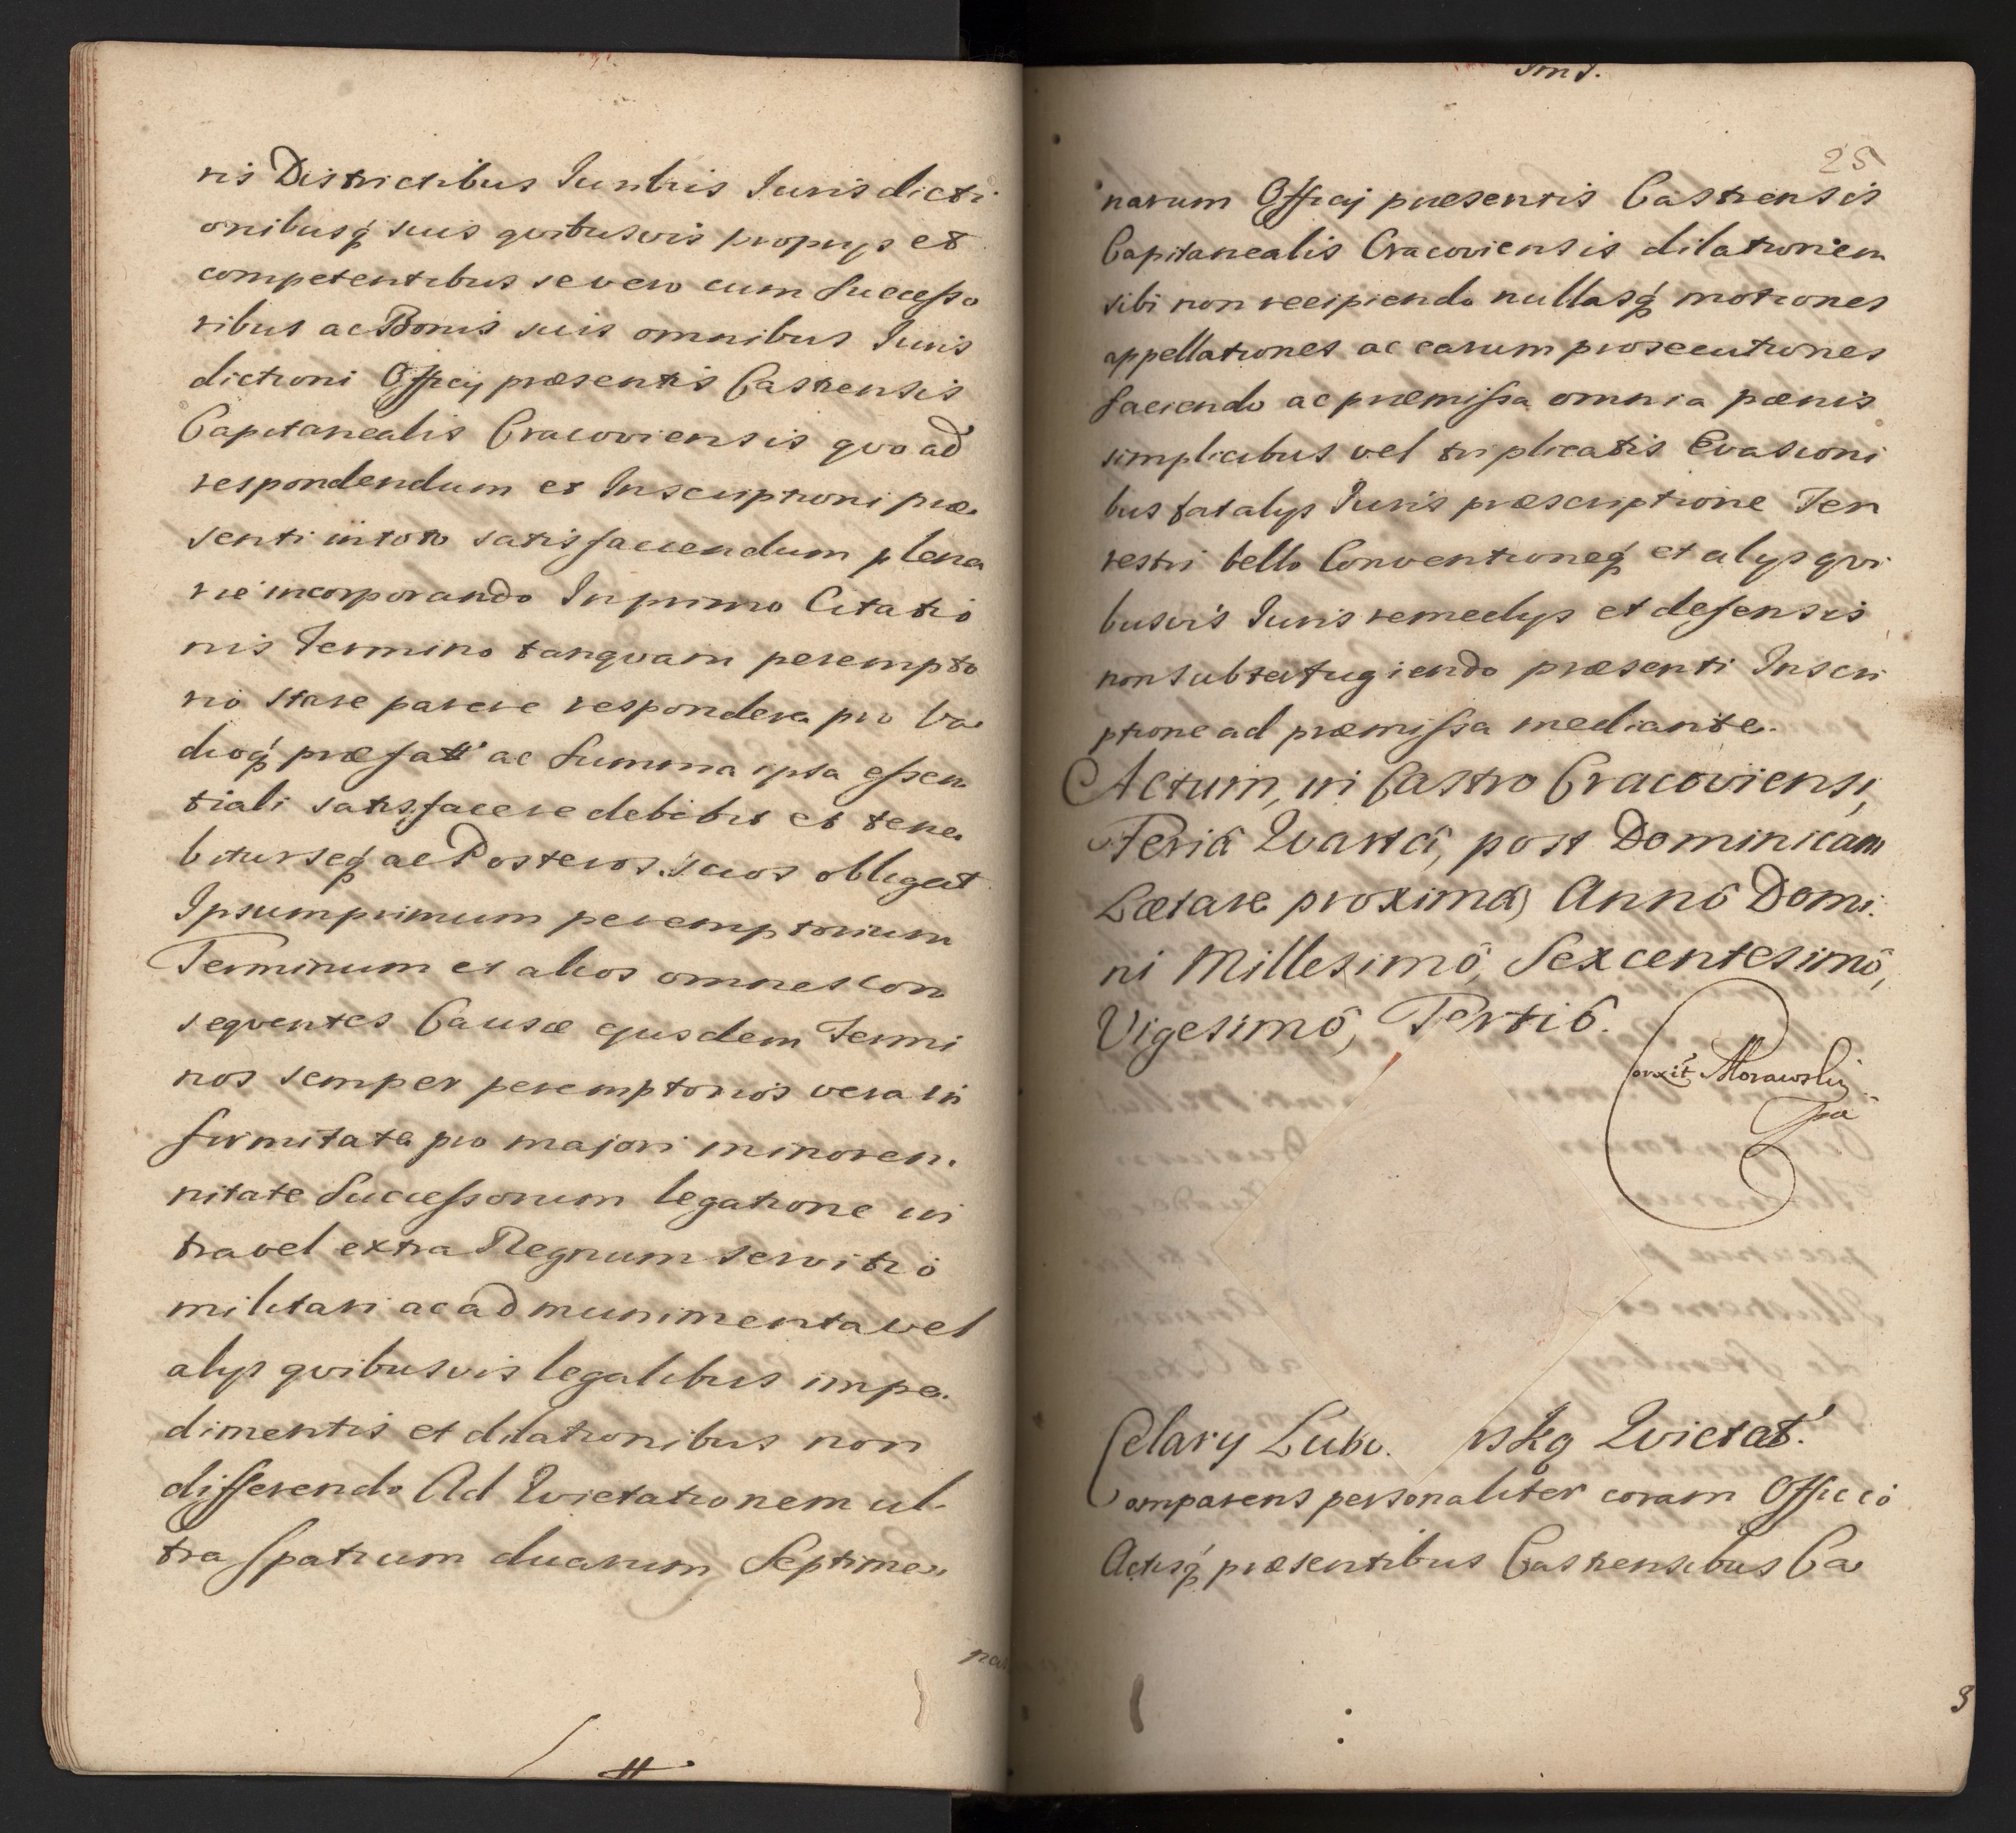 nis Districtibus Juribus Jurisdicti
onibusq́ suis quibusvis proprijs et
competentibus se vero cum Successo
ribus ac Bonis suis omnibus Juris
dictioni Officij præsentis Castrensis
Capitanealis Cracoviensis quo ad
respondendum et Inscriptioni præ
senti in toto satisfaciendum plena
rie incorporando In primo Citatio
nis Termino tanquam perempto
rio stare parere respondere pro Va
dioq́ præfatt ac Summa ipsa essen
tiali satisfacere debebit et tene
biturseq́ ac Posteros suos obligat
Ipsum primum peremptorium
Terminum et alios omnes con
sequentes Causæ ejusdem Termi
nos semper peremptorios vera in
firmitate pro majori minoren
nitate Successorum legatione in
tra vel extra Regnum servitio
militari ac ad munimenta vel
alijs quibusvis legalibus impe
dimentis et dilationibus non
differendo Ad Quietationem ul
tra spatium duarum Septima
nar
25
narum Officij præsentis Castrensis
Capitanealis Cracoviensis dilationem
sibi non recipiendo nullasq́ motiones
appellationes ac earum prosecutiones
faciendo ac præmissa omnia pænis
simplicibus vel triplicatis Evasioni
bus fatalijs Juris præscriptione Ter
restri bello Conventioneq́ et alijs qui
busvis Juris remedijs et defensis
non subterfugiendo præsenti Inscri
ptione ad præmissa mediante.
Actum, in Castro Cracoviensi,
Feriâ Quartâ, post Dominicam
Lætare proximâ, Annô Domi
ni Millesimô, Sexcentesimô,
Vigesimô, Tertiô.
Corexit Morawski
Celary Lubo nskg Quietat.
Comparens personaliter coram Officio
Actisq́ præsentibus Castrensibus Ca